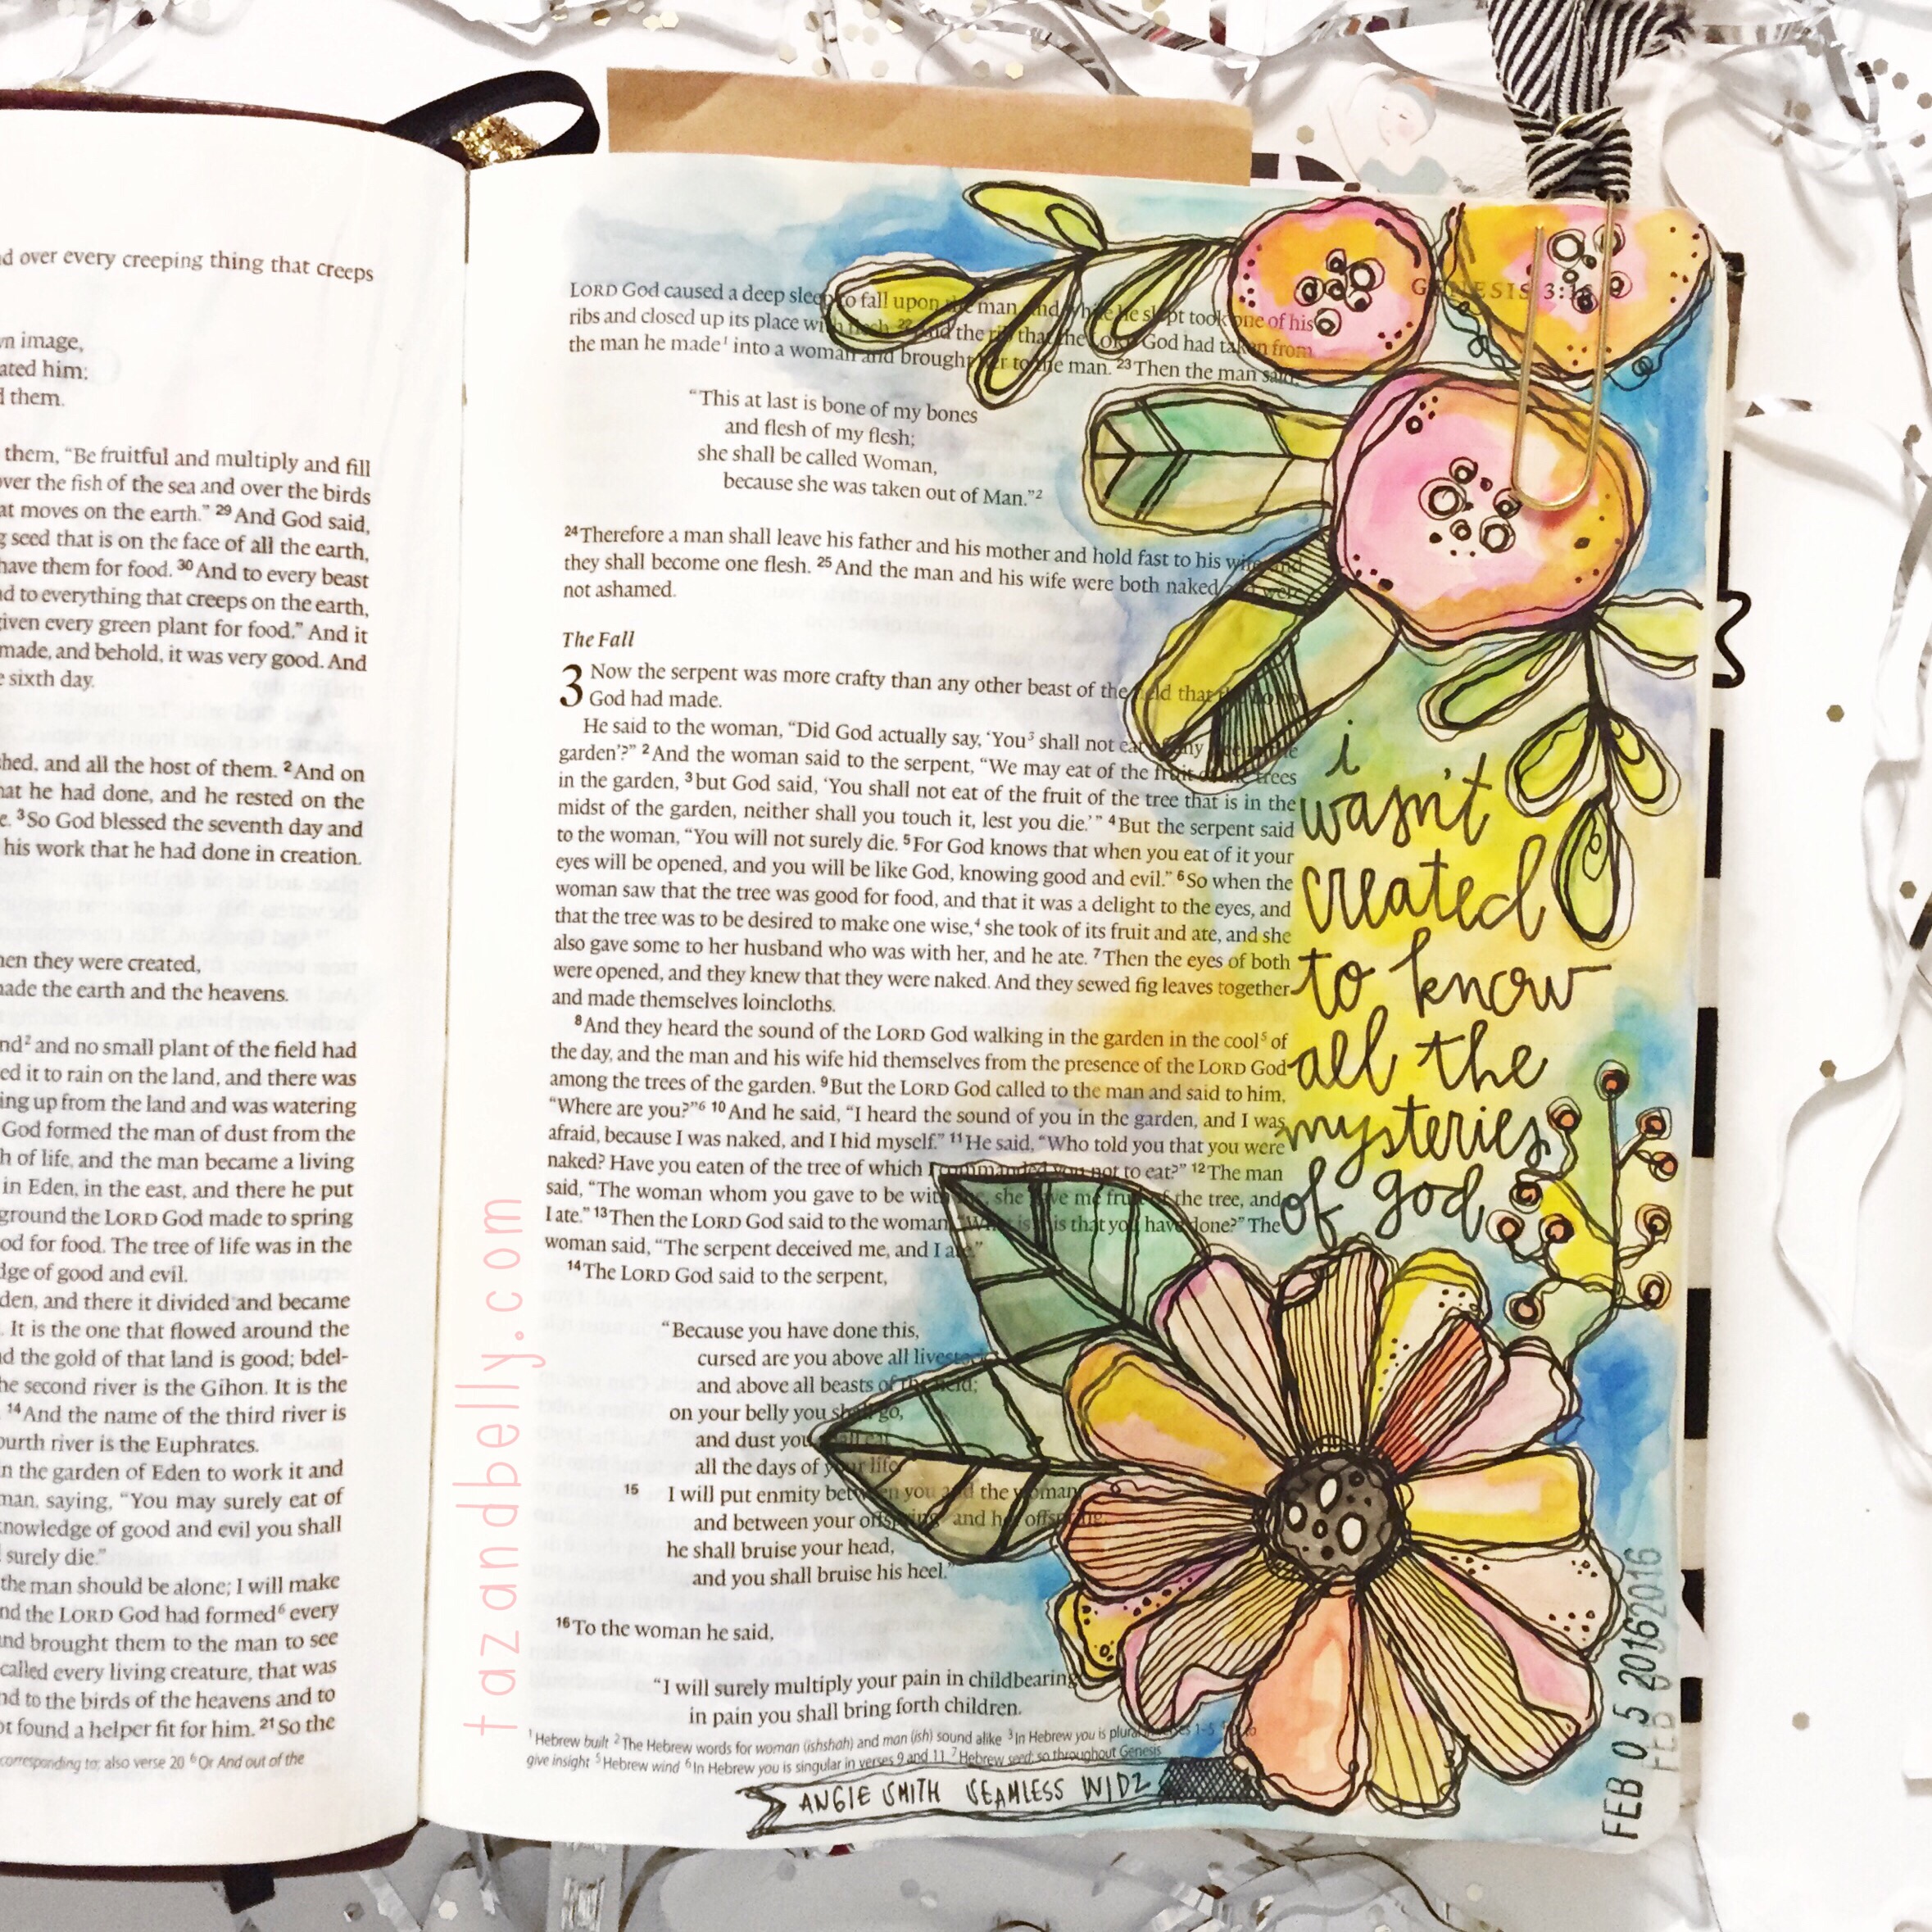 d over every creeping thing that creeps
n image,
ated him;
d them.
them, “Be fruitful and multiply and fill
ver the fish of the sea and over the birds
at moves on the earth.” 29 And God said,
g seed that is on the face of all the earth,
have them for food. 30 And to every beast
nd to everything that creeps on the earth,
given every green plant for food.” And it
made, and behold, it was very good. And
e sixth day.
hed, and all the host of them. 2 And on
hat he had done, and he rested on the
e. 3 So God blessed the seventh day and
his work that he had done in creation.
hen they were created,
made the earth and the heavens.
nd2 and no small plant of the field had
ed it to rain on the land, and there was
ing up from the land and was watering
God formed the man of dust from the
h of life, and the man became a living
in Eden, in the east, and there he put
ground the LORD God made to spring
od for food. The tree of life was in the
dge of good and evil.
den, and there it divided and became
. It is the one that flowed around the
d the gold of that land is good; bdel-
he second river is the Gihon. It is the
14 And the name of the third river is
ourth river is the Euphrates.
n the garden of Eden to work it and
man, saying, “You may surely eat of
knowledge of good and evil you shall
surely die.”
the man should be alone; I will make
nd the LORD God had formed6 every
and brought them to the man to see
called every living creature, that was
nd to the birds of the heavens and to
ot found a helper fit for him. 21 So the
corresponding to; also verse 20 6 Or And out of the
GENESIS 3:16
LORD God caused a deep sleep to fall upon the man, and while he slept took one of his
ribs and closed up its place with flesh. 22 And the rib that the LORD God had taken from
the man he made1 into a woman and brought her to the man. 23 Then the man said,
“This at last is bone of my bones
and flesh of my flesh;
she shall be called Woman,
because she was taken out of Man.”2
24 Therefore a man shall leave his father and his mother and hold fast to his wife, and
they shall become one flesh. 25 And the man and his wife were both naked and were
not ashamed.
The Fall
3 Now the serpent was more crafty than any other beast of the field that the LORD
God had made.
He said to the woman, “Did God actually say, ‘You3 shall not eat of any tree in the
garden’?” 2 And the woman said to the serpent, “We may eat of the fruit of the trees
in the garden, 3 but God said, ‘You shall not eat of the fruit of the tree that is in the
midst of the garden, neither shall you touch it, lest you die.’” 4 But the serpent said
to the woman, “You will not surely die. 5 For God knows that when you eat of it your
eyes will be opened, and you will be like God, knowing good and evil.” 6 So when the
woman saw that the tree was good for food, and that it was a delight to the eyes, and
that the tree was to be desired to make one wise,4 she took of its fruit and ate, and she
also gave some to her husband who was with her, and he ate. 7 Then the eyes of both
were opened, and they knew that they were naked. And they sewed fig leaves together
and made themselves loincloths.
8 And they heard the sound of the LORD God walking in the garden in the cool5 of
the day, and the man and his wife hid themselves from the presence of the LORD God
among the trees of the garden. 9 But the LORD God called to the man and said to him,
“Where are you?”6 10 And he said, “I heard the sound of you in the garden, and I was
afraid, because I was naked, and I hid myself.” 11 He said, “Who told you that you were
naked? Have you eaten of the tree of which I commanded you not to eat?” 12 The man
said, “The woman whom you gave to be with me, she gave me fruit of the tree, and
I ate.” 13 Then the LORD God said to the woman, “What is this that you have done?” The
woman said, “The serpent deceived me, and I ate.”
14 The LORD God said to the serpent,
“Because you have done this,
cursed are you above all livestock
and above all beasts of the field;
on your belly you shall go,
and dust you shall eat
all the days of your life.
15 I will put enmity between you and the woman,
and between your offspring7 and her offspring;
he shall bruise your head,
and you shall bruise his heel.”
16 To the woman he said,
“I will surely multiply your pain in childbearing;
in pain you shall bring forth children.
1 Hebrew built 2 The Hebrew words for woman (ishshah) and man (ish) sound alike 3 In Hebrew you is plural in verses 1–5 4 Or to
give insight 5 Hebrew wind 6 In Hebrew you is singular in verses 9 and 11 7 Hebrew seed; so throughout Genesis
i
wasn't
created
to know
all the
mysteries
of god
ANGIE SMITH SEAMLESS W1D2
FEB 0 5 2016
FEB 2016
tazandbelly.com